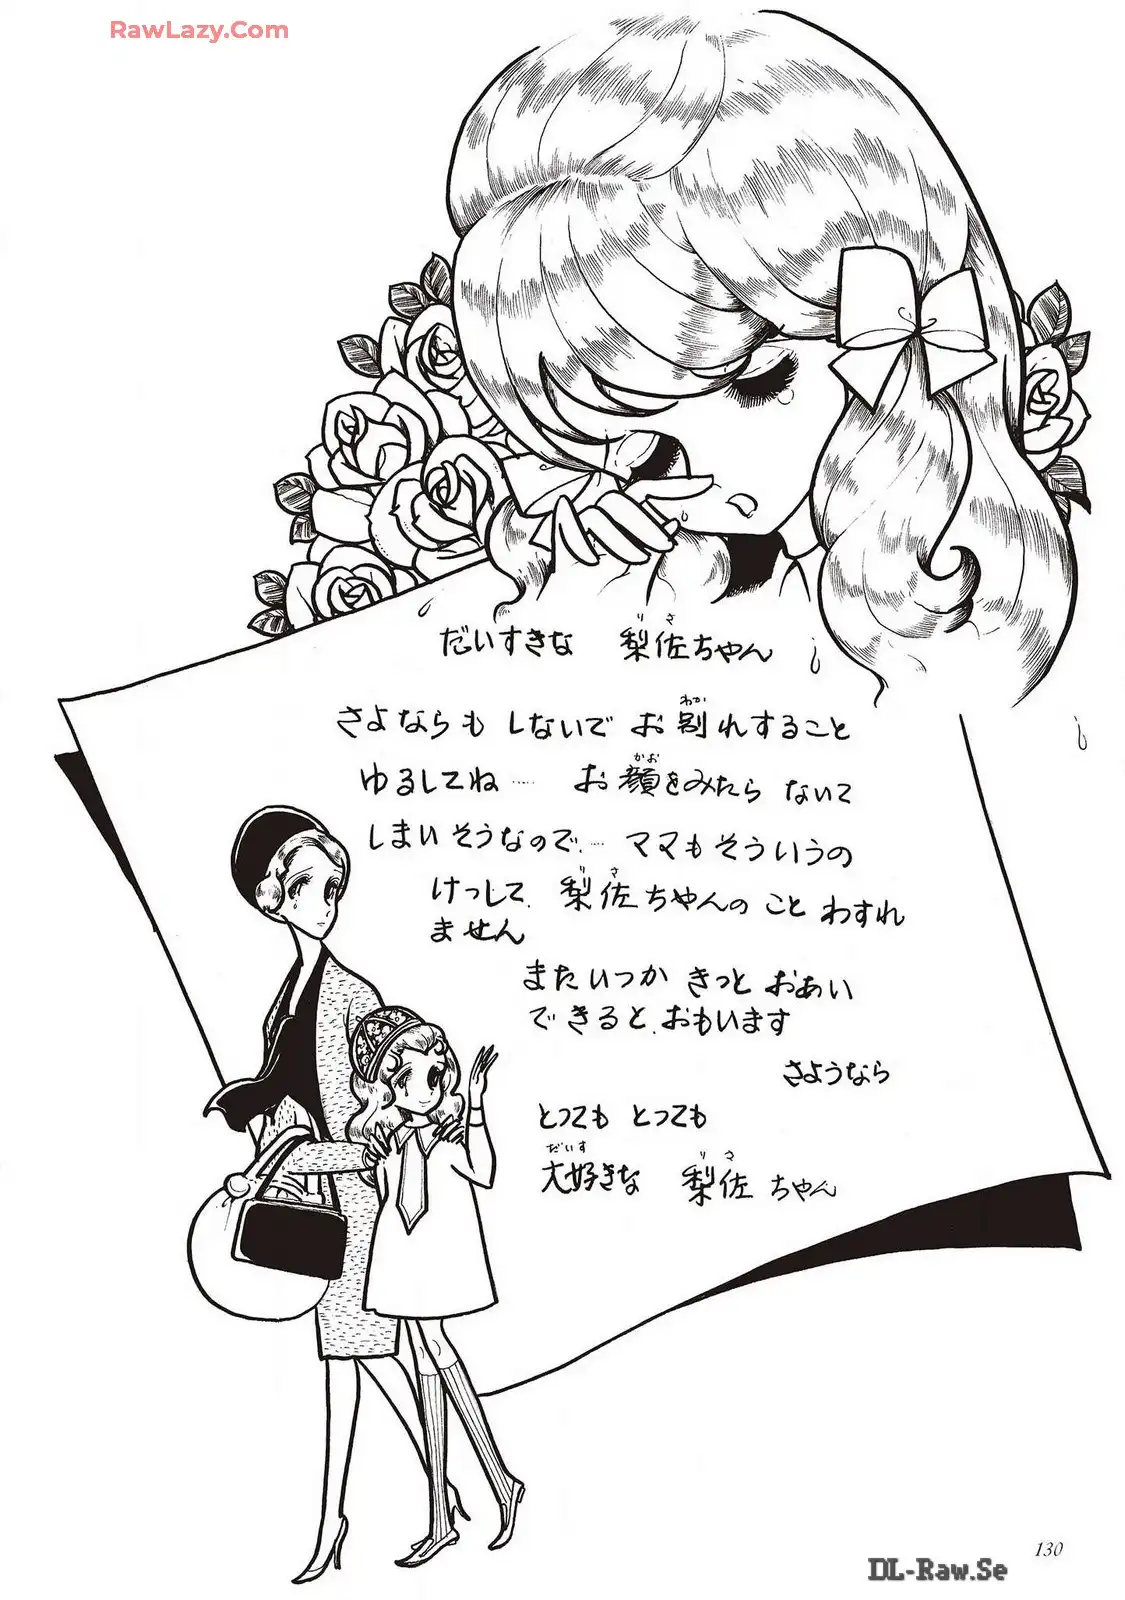 RawLazy.Com
だいすきな 梨佐ちゃん
りさ
さよならも しないで お別れすること
わか
ゆるしてね…… お顔をみたら ないて
かお
しまいそうなので、… ママもそういうの
けっして、梨佐ちゃんの こと わすれ
りさ
ません
またいつか きっと おあい
できると、おもいます
さようなら
とっても とっても
大好きな 梨佐 ちゃん
だいす りさ
130
DL-Raw.Se